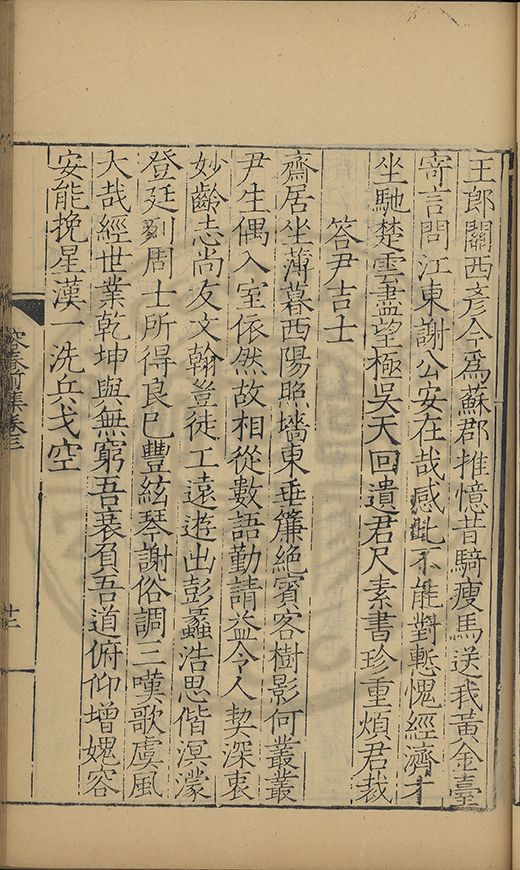 王郎關西彥今爲蘇郡推憶昔騎瘦馬送我黃金臺
寄言問江東謝公安在哉感此不能對慙愧經濟才
坐馳楚雲盡望極吳天回遺君尺素書珍重煩君裁
答尹吉士
齋居坐薄暮西陽照墻東垂簾絕賓客樹影何叢叢
尹生偶入室依然故相從數語勤請益令人契深衷
妙齡志尚友文翰豈徒工遠遊出彭蠡浩思偕溟濛
登廷列周士所得良已豐絃琴謝俗調三嘆歌虞風
大哉經世業乾坤與無窮吾衰負吾道俯仰增媿容
安能挽星漢一洗兵戈空
前集卷三
十二